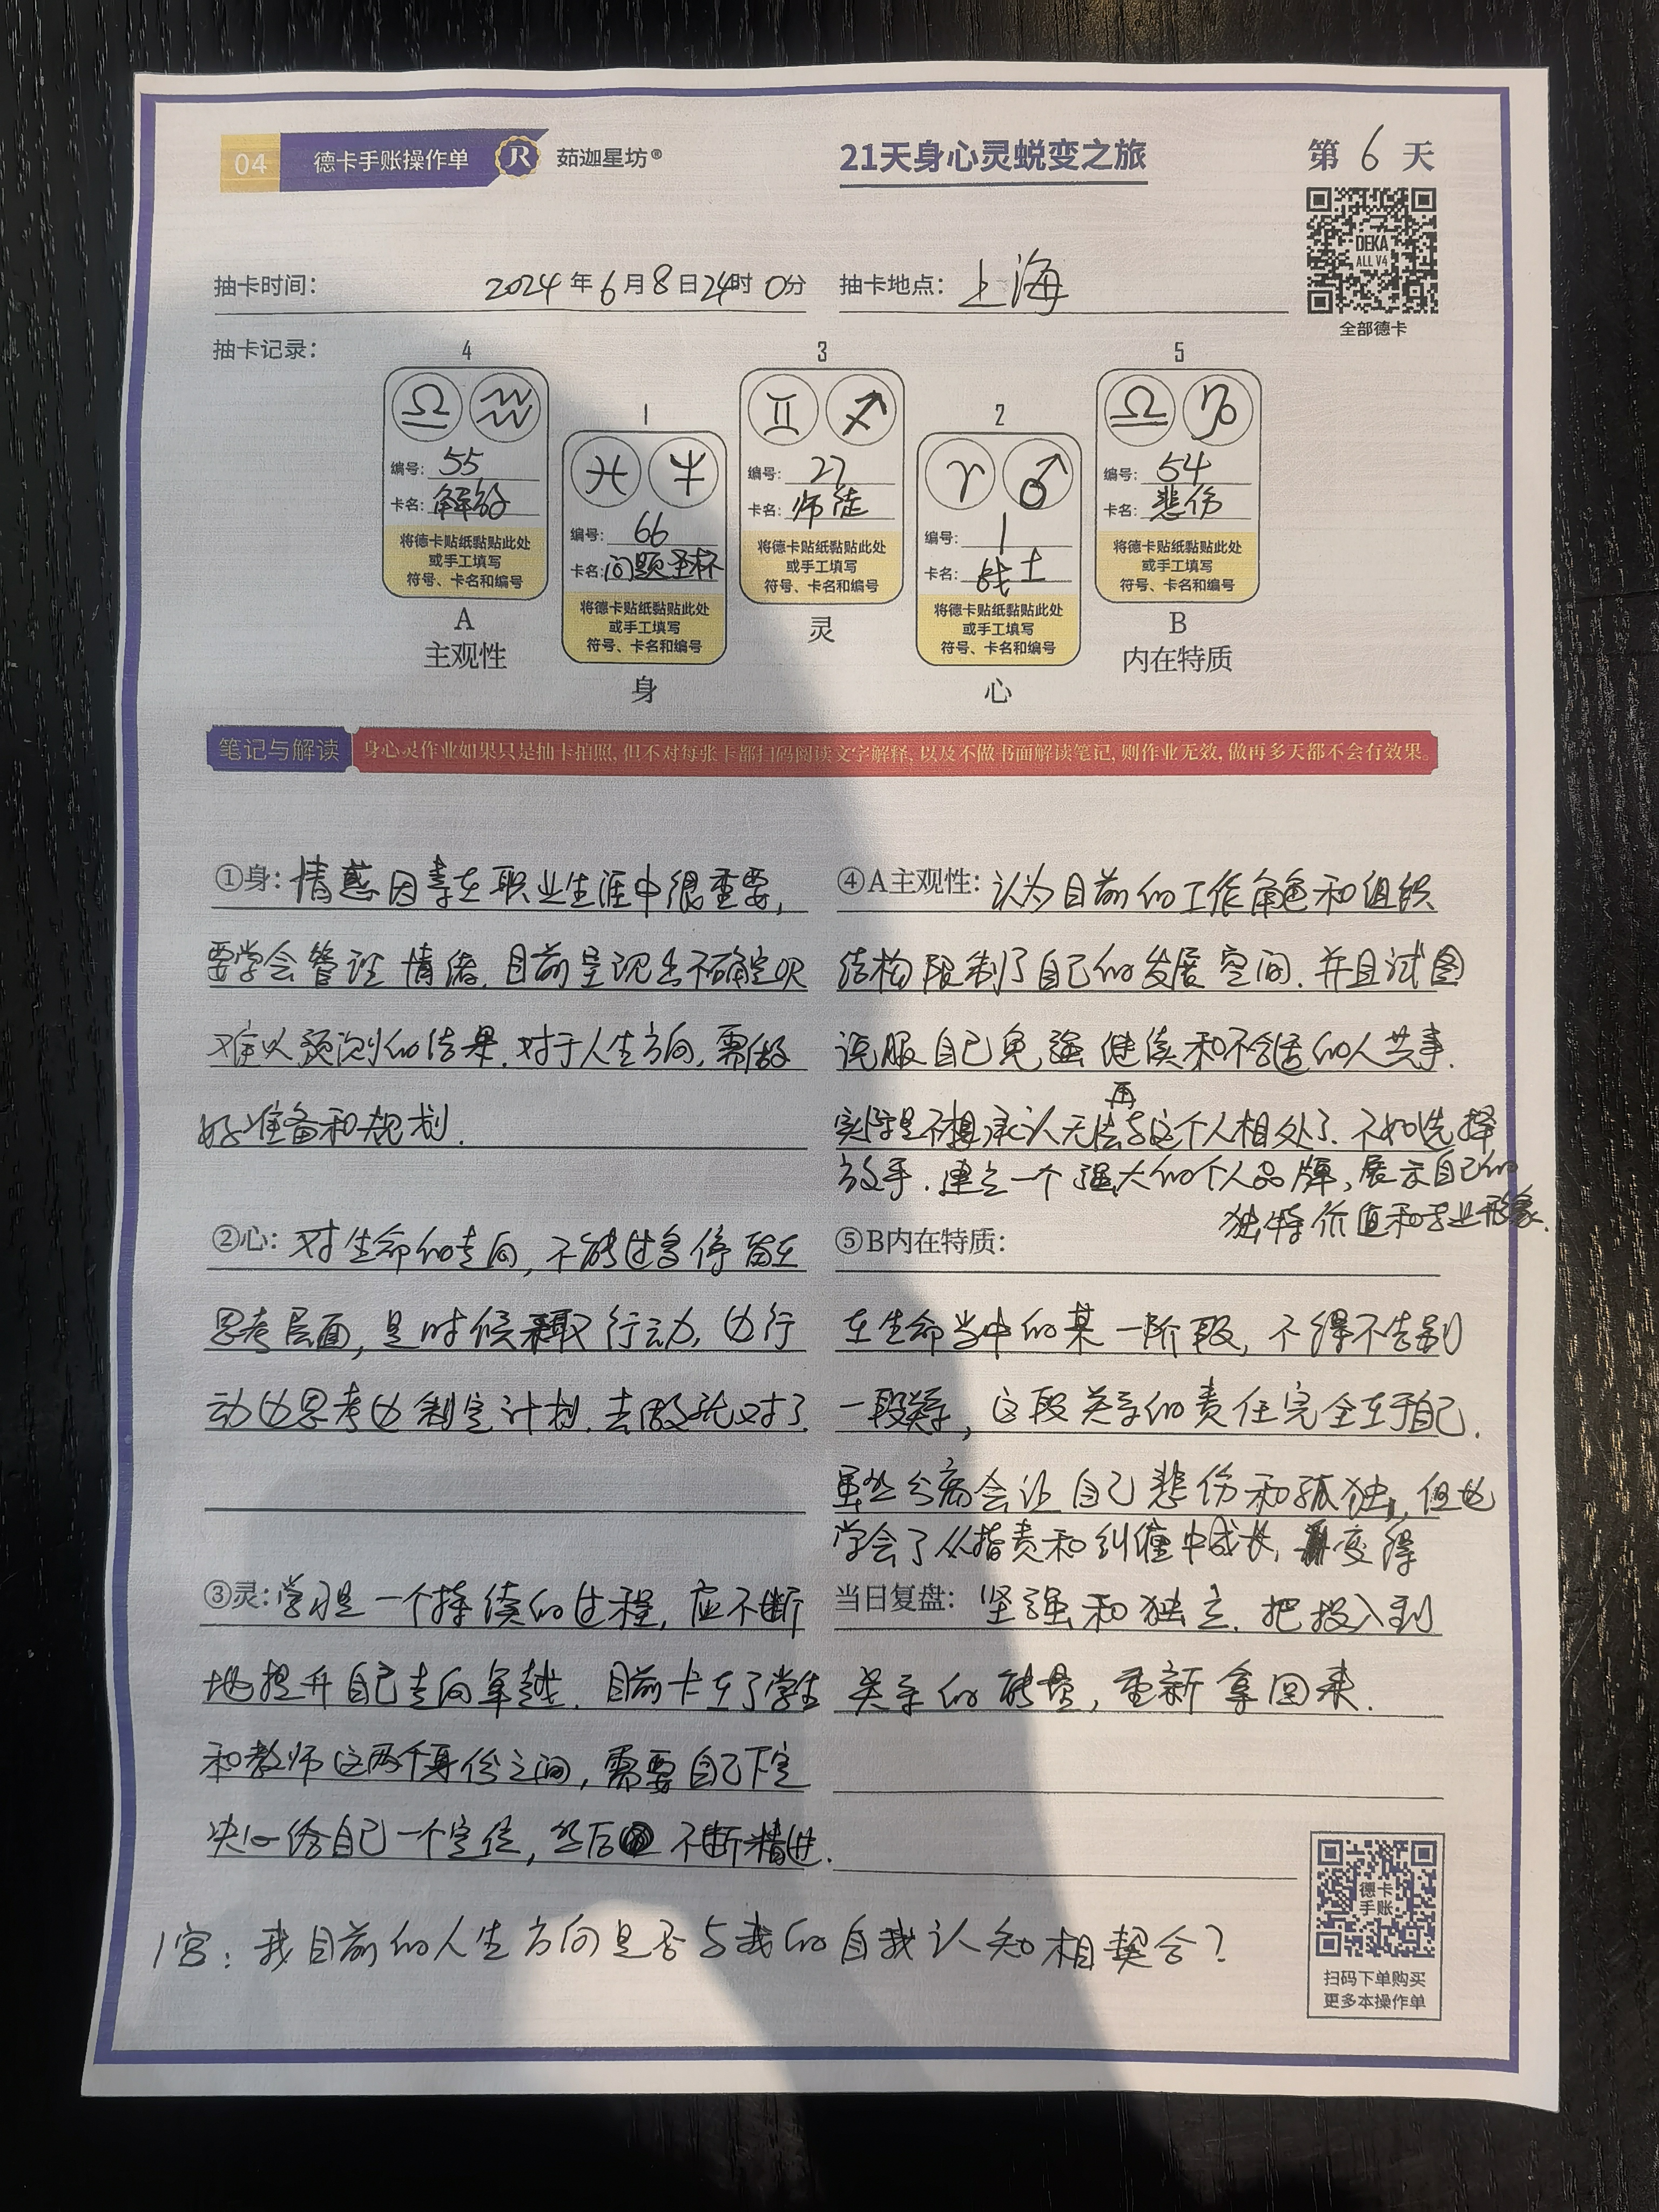 04 德卡手账操作单 JR 茹迦星坊®
21天身心灵蜕变之旅
第 6 天
DEKA
ALL V4
全部德卡
抽卡时间： 2024年6月8日24时0分
抽卡地点： 上海
抽卡记录：
4
♎ ♒
编号：55
卡名：解放
将德卡贴纸黏贴此处
或手工填写
符号、卡名和编号
A
主观性
1
♓
编号：66
卡名：问题圣杯
将德卡贴纸黏贴此处
或手工填写
符号、卡名和编号
身
3
♊ ♐
编号：27
卡名：师徒
将德卡贴纸黏贴此处
或手工填写
符号、卡名和编号
灵
2
♈ ♂
编号：1
卡名：战士
将德卡贴纸黏贴此处
或手工填写
符号、卡名和编号
心
5
♎ ♑
编号：54
卡名：悲伤
将德卡贴纸黏贴此处
或手工填写
符号、卡名和编号
B
内在特质
笔记与解读
身心灵作业如果只是抽卡拍照，但不对每张卡都扫码阅读文字解释，以及不做书面解读笔记，则作业无效，做再多天都不会有效果。
①身：情感因素在职业生涯中很重要，
要学会管理情绪.目前呈现出不确定或
难以预测的结果.对于人生方向,需做
好准备和规划.
②心：对生命的走向,不能过多停留在
思考层面,是时候采取行动,边行
动边思考边制定计划.去做就对了.
③灵：学习是一个持续的过程,应不断
地提升自己走向卓越.目前卡在了学生
和教师这两个身份之间,需要自己下定
决心给自己一个定位,然后 不断精进.
④A主观性：认为目前的工作角色和组织
结构限制了自己的发展空间.并且试图
说服自己勉强继续和不合适的人共事.
实际是不想承认无法再与这个人相处了.不如选择
放手.建立一个强大的个人品牌,展示自己的
独特价值和专业形象.
⑤B内在特质：
在生命当中的某一阶段,不得不告别
一段关系,这段关系的责任完全在于自己.
虽然分离会让自己悲伤和孤独,但也
学会了从指责和纠缠中成长,变得
当日复盘：坚强和独立.把投入到
关系的能量,重新拿回来.
1宫：我目前的人生方向是否与我的自我认知相契合？
德卡
手账
扫码下单购买
更多本操作单